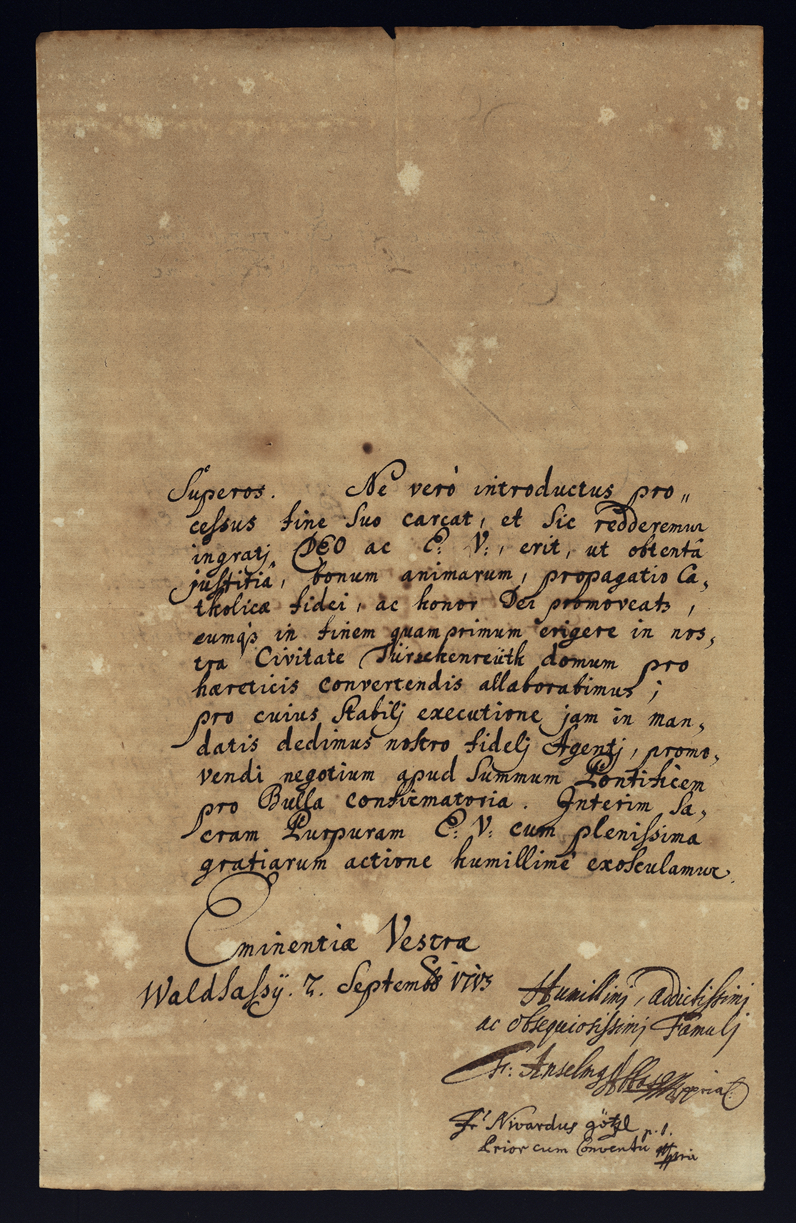 Superos. Ne verò introductus pro„
cessus fine suo careat, et sic redderemur
ingratj DEO ac E: V:, erit, ut obtentâ
justitiâ, bonum animarum, propagatio Ca,
tholicæ fidei, ac honor Dei promoveatr,
eumq́s in finem quamprimum erigere in nos,
tra Civitate Türschenreüth domum pro
hæreticis convertendis allaborabimus;
pro cuius stabilj executione jam in man,
datis dedimus nostro fidelj Agentj, promo,
vendi negotium apud Summum Pontificem
pro Bulla confirmatoria. Interim Sa,
cram Purpuram E: V: cum plenissima
gratiarum actione humillimè exosculamur.
Eminentiæ Vestræ
Waldsassÿ. 7. Septembr 1713
Humillimj, addictissimj
ac obsequiosissimj Famulj
Fr: Anselmg Abbas mppria
Fr: Nivardus götzl p. t.
Prior cum Conventu mppria